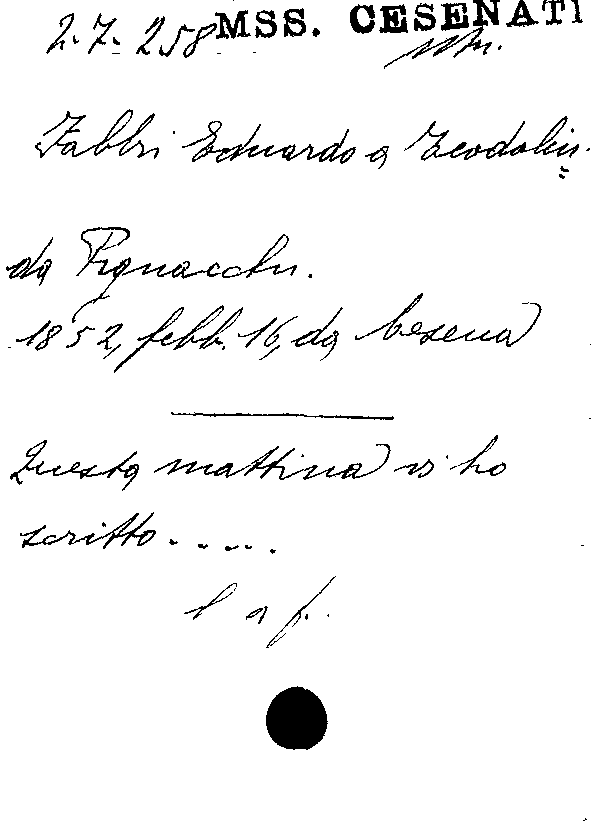 2.7.258 MSS. CESENATI
Fabbri Eduardo a Teodolin.
da Pignacchi.
1852, febb. 16, da Cesena
Questa mattina vi ho
scritto.....
l a f.